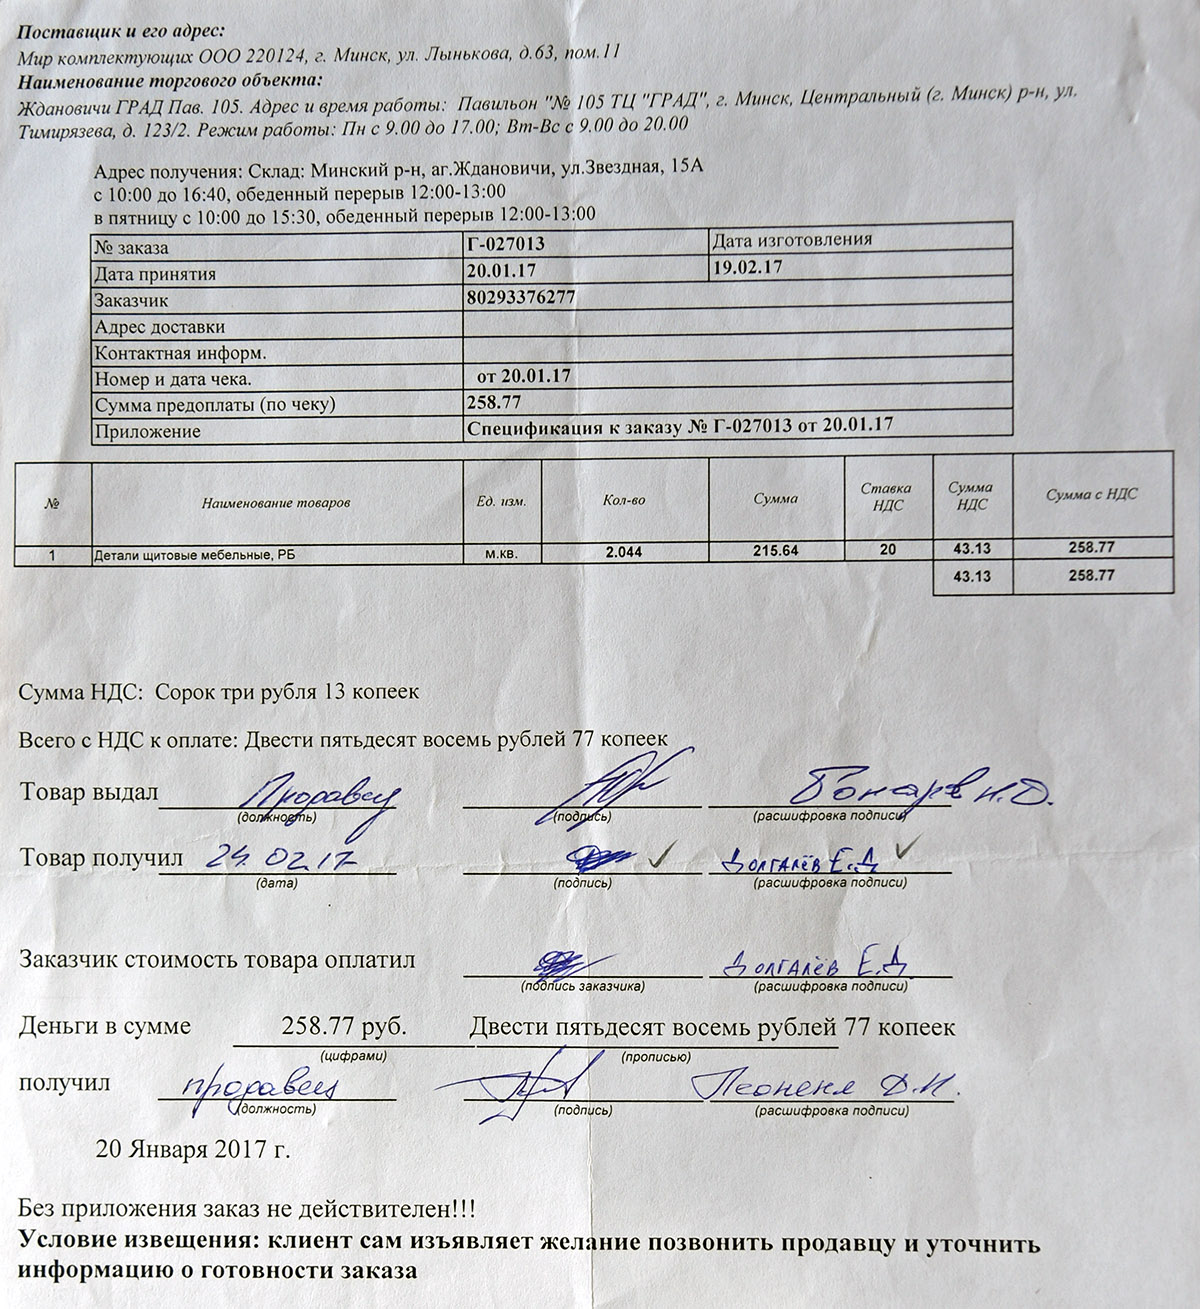 Поставщик и его адрес:
Мир комплектующих ООО 220124, г. Минск, ул. Лынькова, д.63, пом.11
Наименование торгового объекта:
Ждановичи ГРАД Пав. 105. Адрес и время работы: Павильон "№ 105 ТЦ "ГРАД", г. Минск, Центральный (г. Минск) р-н, ул.
Тимирязева, д. 123/2. Режим работы: Пн с 9.00 до 17.00; Вт-Вс с 9.00 до 20.00
Адрес получения: Склад: Минский р-н, аг.Ждановичи, ул.Звездная, 15А
с 10:00 до 16:40, обеденный перерыв 12:00-13:00
в пятницу с 10:00 до 15:30, обеденный перерыв 12:00-13:00
№ заказа Г-027013 Дата изготовления
Дата принятия 20.01.17 19.02.17
Заказчик 80293376277
Адрес доставки
Контактная информ.
Номер и дата чека. от 20.01.17
Сумма предоплаты (по чеку) 258.77
Приложение Спецификация к заказу № Г-027013 от 20.01.17
№ Наименование товаров Ед. изм. Кол-во Сумма Ставка НДС Сумма НДС Сумма с НДС
1 Детали щитовые мебельные, РБ м.кв. 2.044 215.64 20 43.13 258.77
43.13 258.77
Сумма НДС: Сорок три рубля 13 копеек
Всего с НДС к оплате: Двести пятьдесят восемь рублей 77 копеек
Товар выдал Продавец
(должность) (подпись) (расшифровка подписи)
Товар получил 24.02.17 Долгалёв Е.Д
(дата) (подпись) (расшифровка подписи)
Заказчик стоимость товара оплатил Долгалёв Е.Д.
(подпись заказчика) (расшифровка подписи)
Деньги в сумме 258.77 руб. Двести пятьдесят восемь рублей 77 копеек
(цифрами) (прописью)
получил продавец
(должность) (подпись) (расшифровка подписи)
20 Января 2017 г.
Без приложения заказ не действителен!!!
Условие извещения: клиент сам изъявляет желание позвонить продавцу и уточнить
информацию о готовности заказа